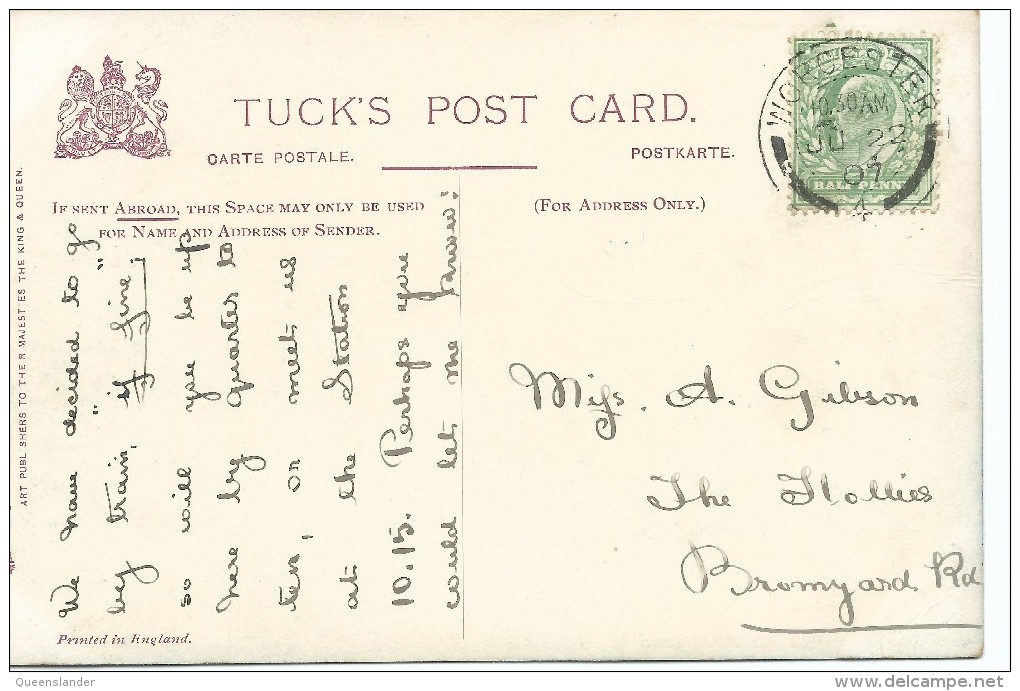 TUCK'S POST CARD.
CARTE POSTALE.
POSTKARTE.
IF SENT ABROAD, THIS SPACE MAY ONLY BE USED
FOR NAME AND ADDRESS OF SENDER.
(FOR ADDRESS ONLY.)
WORCESTER
10.30 AM
JU 22
07
4
HALF PENNY
ART PUBLISHERS TO THEIR MAJESTIES THE KING & QUEEN.
We have decided to go
by train, "if fine",
so will you be up
here by quarter to
ten, or meet us
at the Station
10.15. Perhaps you
could let me know?
Miss. A. Gibson
The Hollies
Bromyard Rd
Printed in England.
Queenslander
delcampe.net